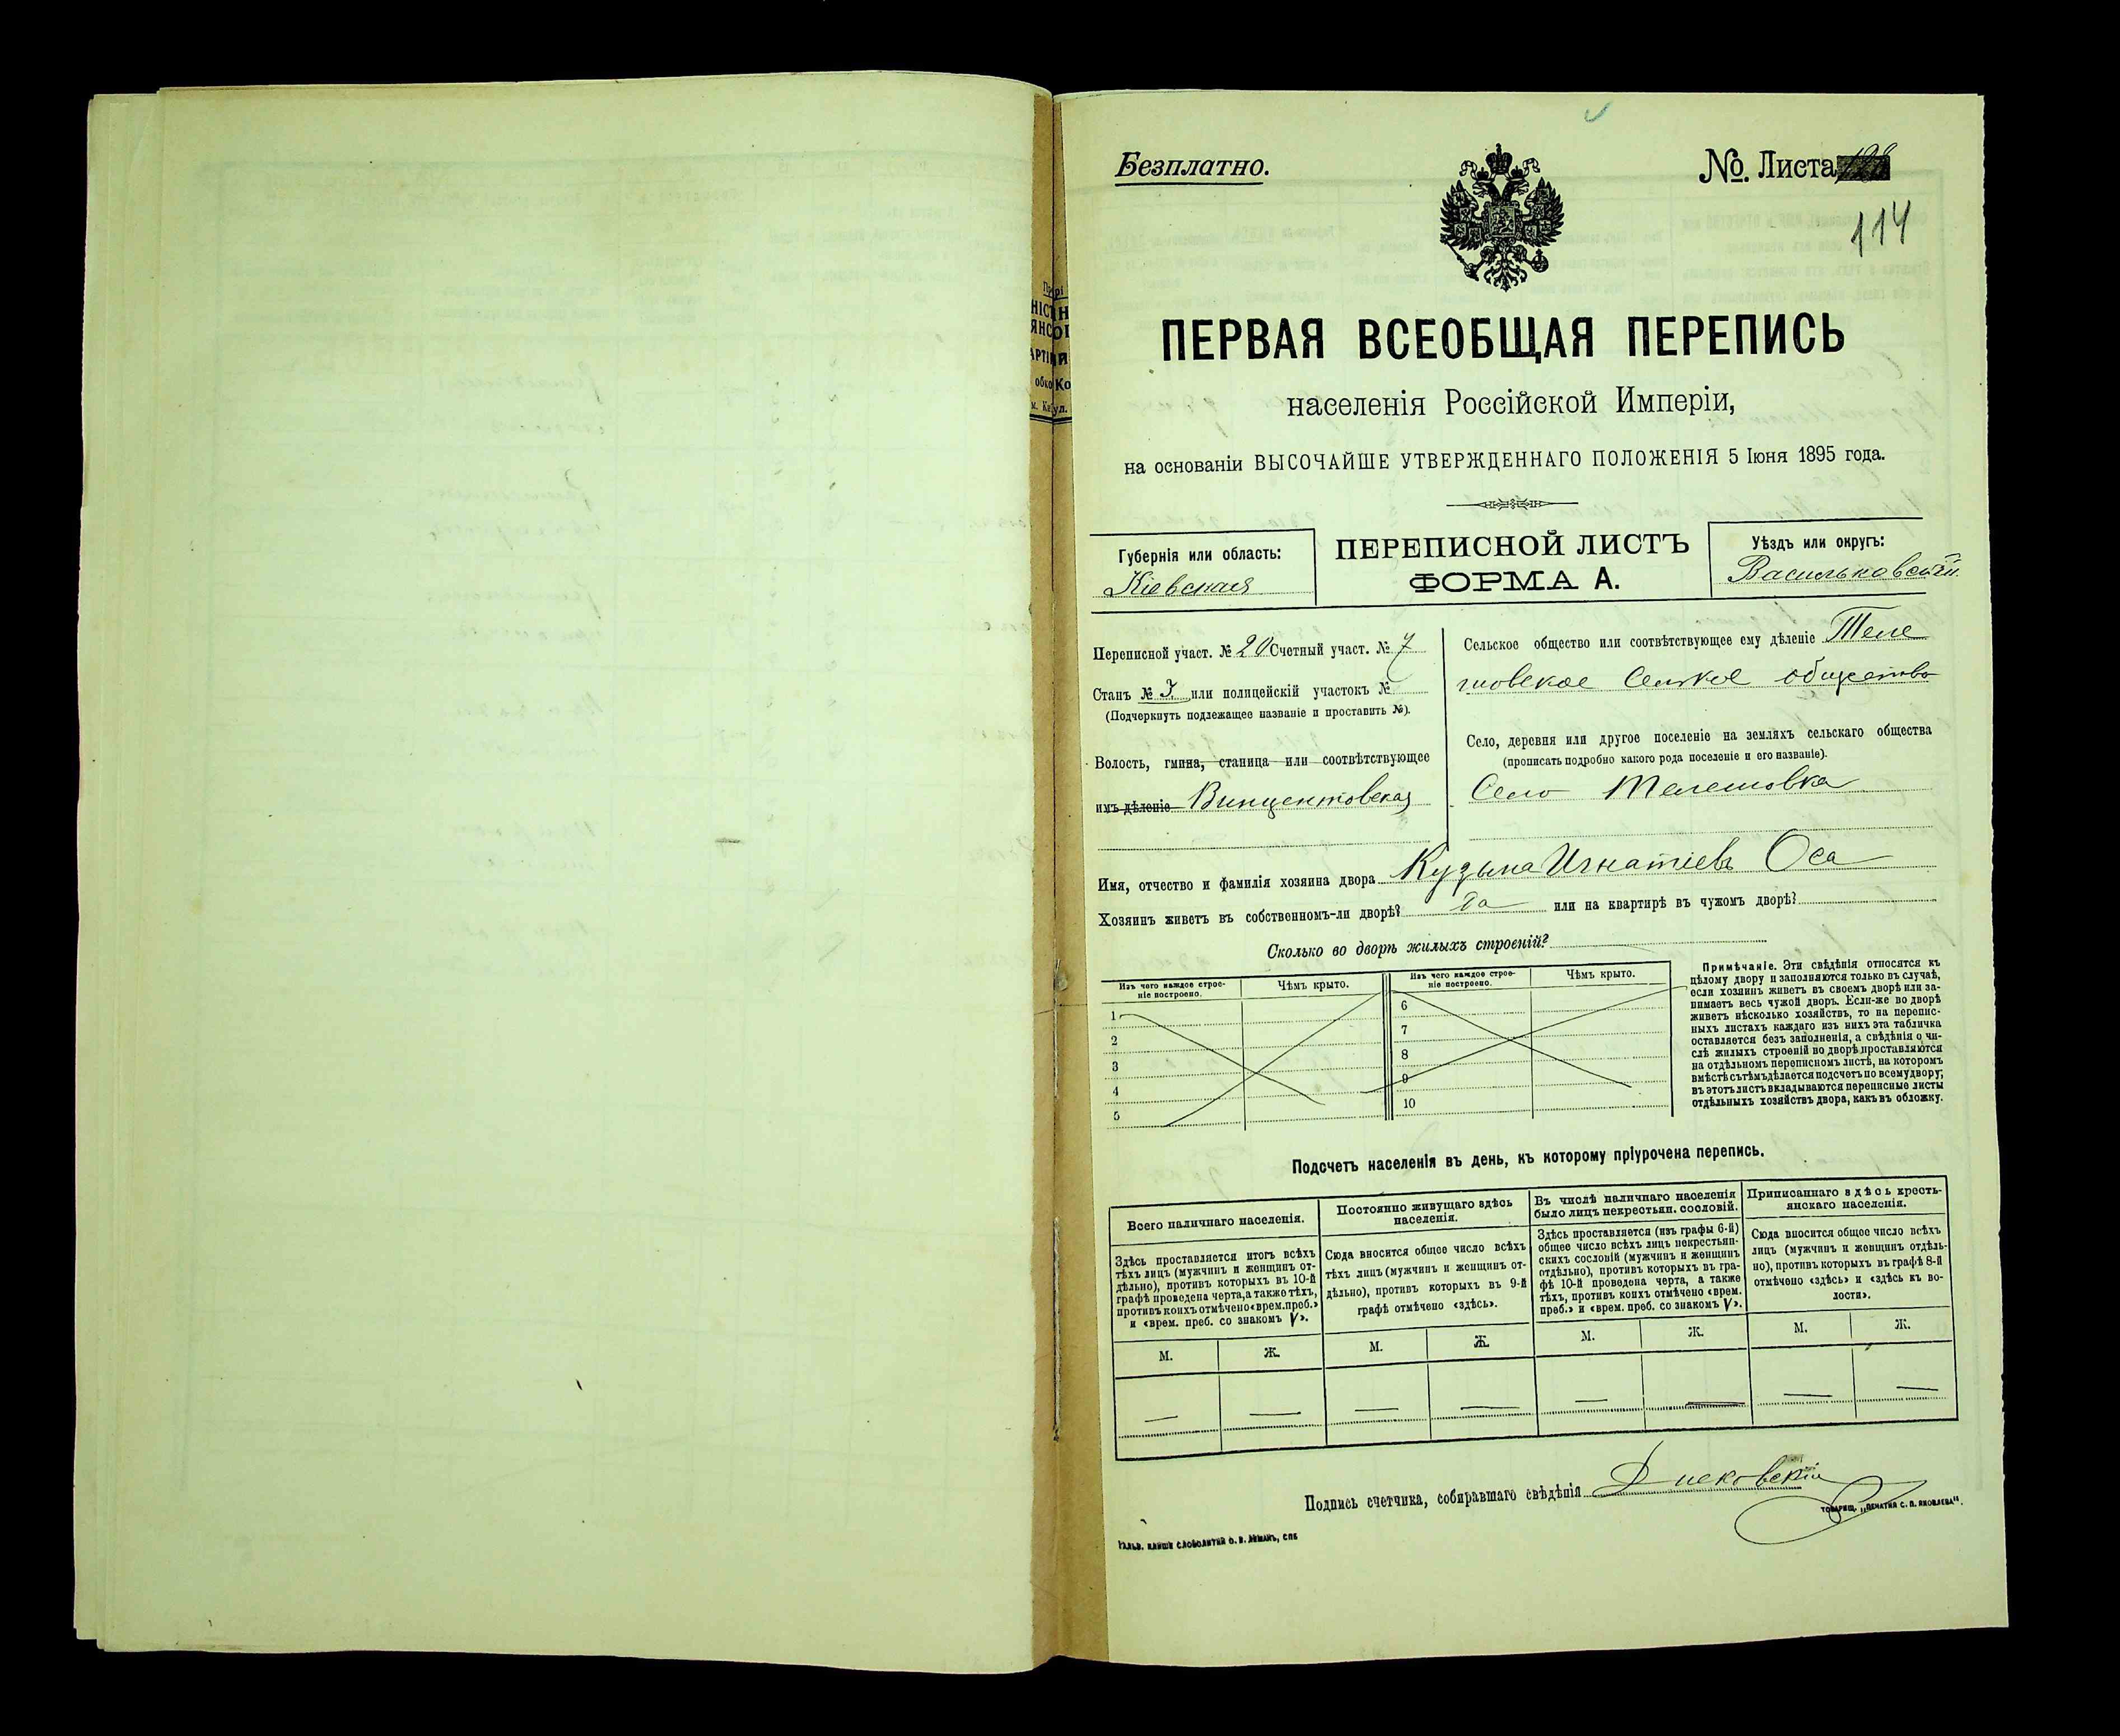 Безплатно.
№. Листа
114
ПЕРВАЯ ВСЕОБЩАЯ ПЕРЕПИСЬ
населенія Россійской Имперіи,
на основаніи ВЫСОЧАЙШЕ УТВЕРЖДЕННАГО ПОЛОЖЕНІЯ 5 Іюня 1895 года.
Губернія или область:
Кіевская
ПЕРЕПИСНОЙ ЛИСТЪ
ФОРМА А.
Уѣздъ или округъ:
Васильковскій
Переписной участ. № 20 Счетный участ. № 7
Станъ № 3 или полицейскій участокъ №
(Подчеркнуть подлежащее названіе и проставить №).
Волость, гмина, станица или соотвѣтствующее
имъ дѣленіе Винцентовская
Сельское общество или соотвѣтствующее ему дѣленіе Теле
шовское Сельское общество
Село, деревня или другое поселеніе на земляхъ сельскаго общества
(прописать подробно какого рода поселеніе и его названіе).
Село Телешовка
Имя, отчество и фамилія хозяина двора Кузьма Игнатіевъ Оса
Хозяинъ живетъ въ собственномъ-ли дворѣ? да или на квартирѣ въ чужомъ дворѣ?
Сколько во дворѣ жилыхъ строеній?
Изъ чего каждое строе-
ніе построено.
Чѣмъ крыто.
1
2
3
4
5
Изъ чего каждое строе-
ніе построено.
Чѣмъ крыто.
6
7
8
9
10
Примѣчаніе. Эти свѣдѣнія относятся къ
цѣлому двору и заполняются только въ случаѣ,
если хозяинъ живетъ въ своемъ дворѣ или за-
нимаетъ весь чужой дворъ. Если-же во дворѣ
живетъ нѣсколько хозяйствъ, то на перепис-
ныхъ листахъ каждаго изъ нихъ эта табличка
оставляется безъ заполненія, а свѣдѣнія о чи-
слѣ жилыхъ строеній во дворѣ проставляются
на отдѣльномъ переписномъ листѣ, на которомъ
вмѣстѣ съ тѣмъ дѣлается подсчетъ по всему двору;
въ этотъ листъ вкладываются переписные листы
отдѣльныхъ хозяйствъ двора, какъ въ обложку.
Подсчетъ населенія въ день, къ которому пріурочена перепись.
Всего наличнаго населенія.
Здѣсь проставляется итогъ всѣхъ
тѣхъ лицъ (мужчинъ и женщинъ от-
дѣльно), противъ которыхъ въ 10-й
графѣ проведена черта, а также тѣхъ,
противъ коихъ отмѣчено «врем. преб.»
и «врем. преб. со знакомъ V».
М. Ж.
— —
Постоянно живущаго здѣсь
населенія.
Сюда вносится общее число всѣхъ
тѣхъ лицъ (мужчинъ и женщинъ от-
дѣльно), противъ которыхъ въ 9-й
графѣ отмѣчено «здѣсь».
М. Ж.
— —
Въ числѣ наличнаго населенія
было лицъ некрестьян. сословій.
Здѣсь проставляется (изъ графы 6-й)
общее число всѣхъ лицъ некрестьян-
скихъ сословій (мужчинъ и женщинъ
отдѣльно), противъ которыхъ въ гра-
фѣ 10-й проведена черта, а также
тѣхъ, противъ коихъ отмѣчено «врем.
преб.» и «врем. преб. со знакомъ V».
М. Ж.
— —
Приписаннаго здѣсь кресть-
янскаго населенія.
Сюда вносится общее число всѣхъ
лицъ (мужчинъ и женщинъ отдѣль-
но), противъ которыхъ въ графѣ 8-й
отмѣчено «здѣсь» и «здѣсь къ во-
лости».
М. Ж.
— —
Подпись счетчика, собиравшаго свѣдѣнія
ТОВАРИЩ. „ПЕЧАТНЯ С. П. ЯКОВЛЕВА“.